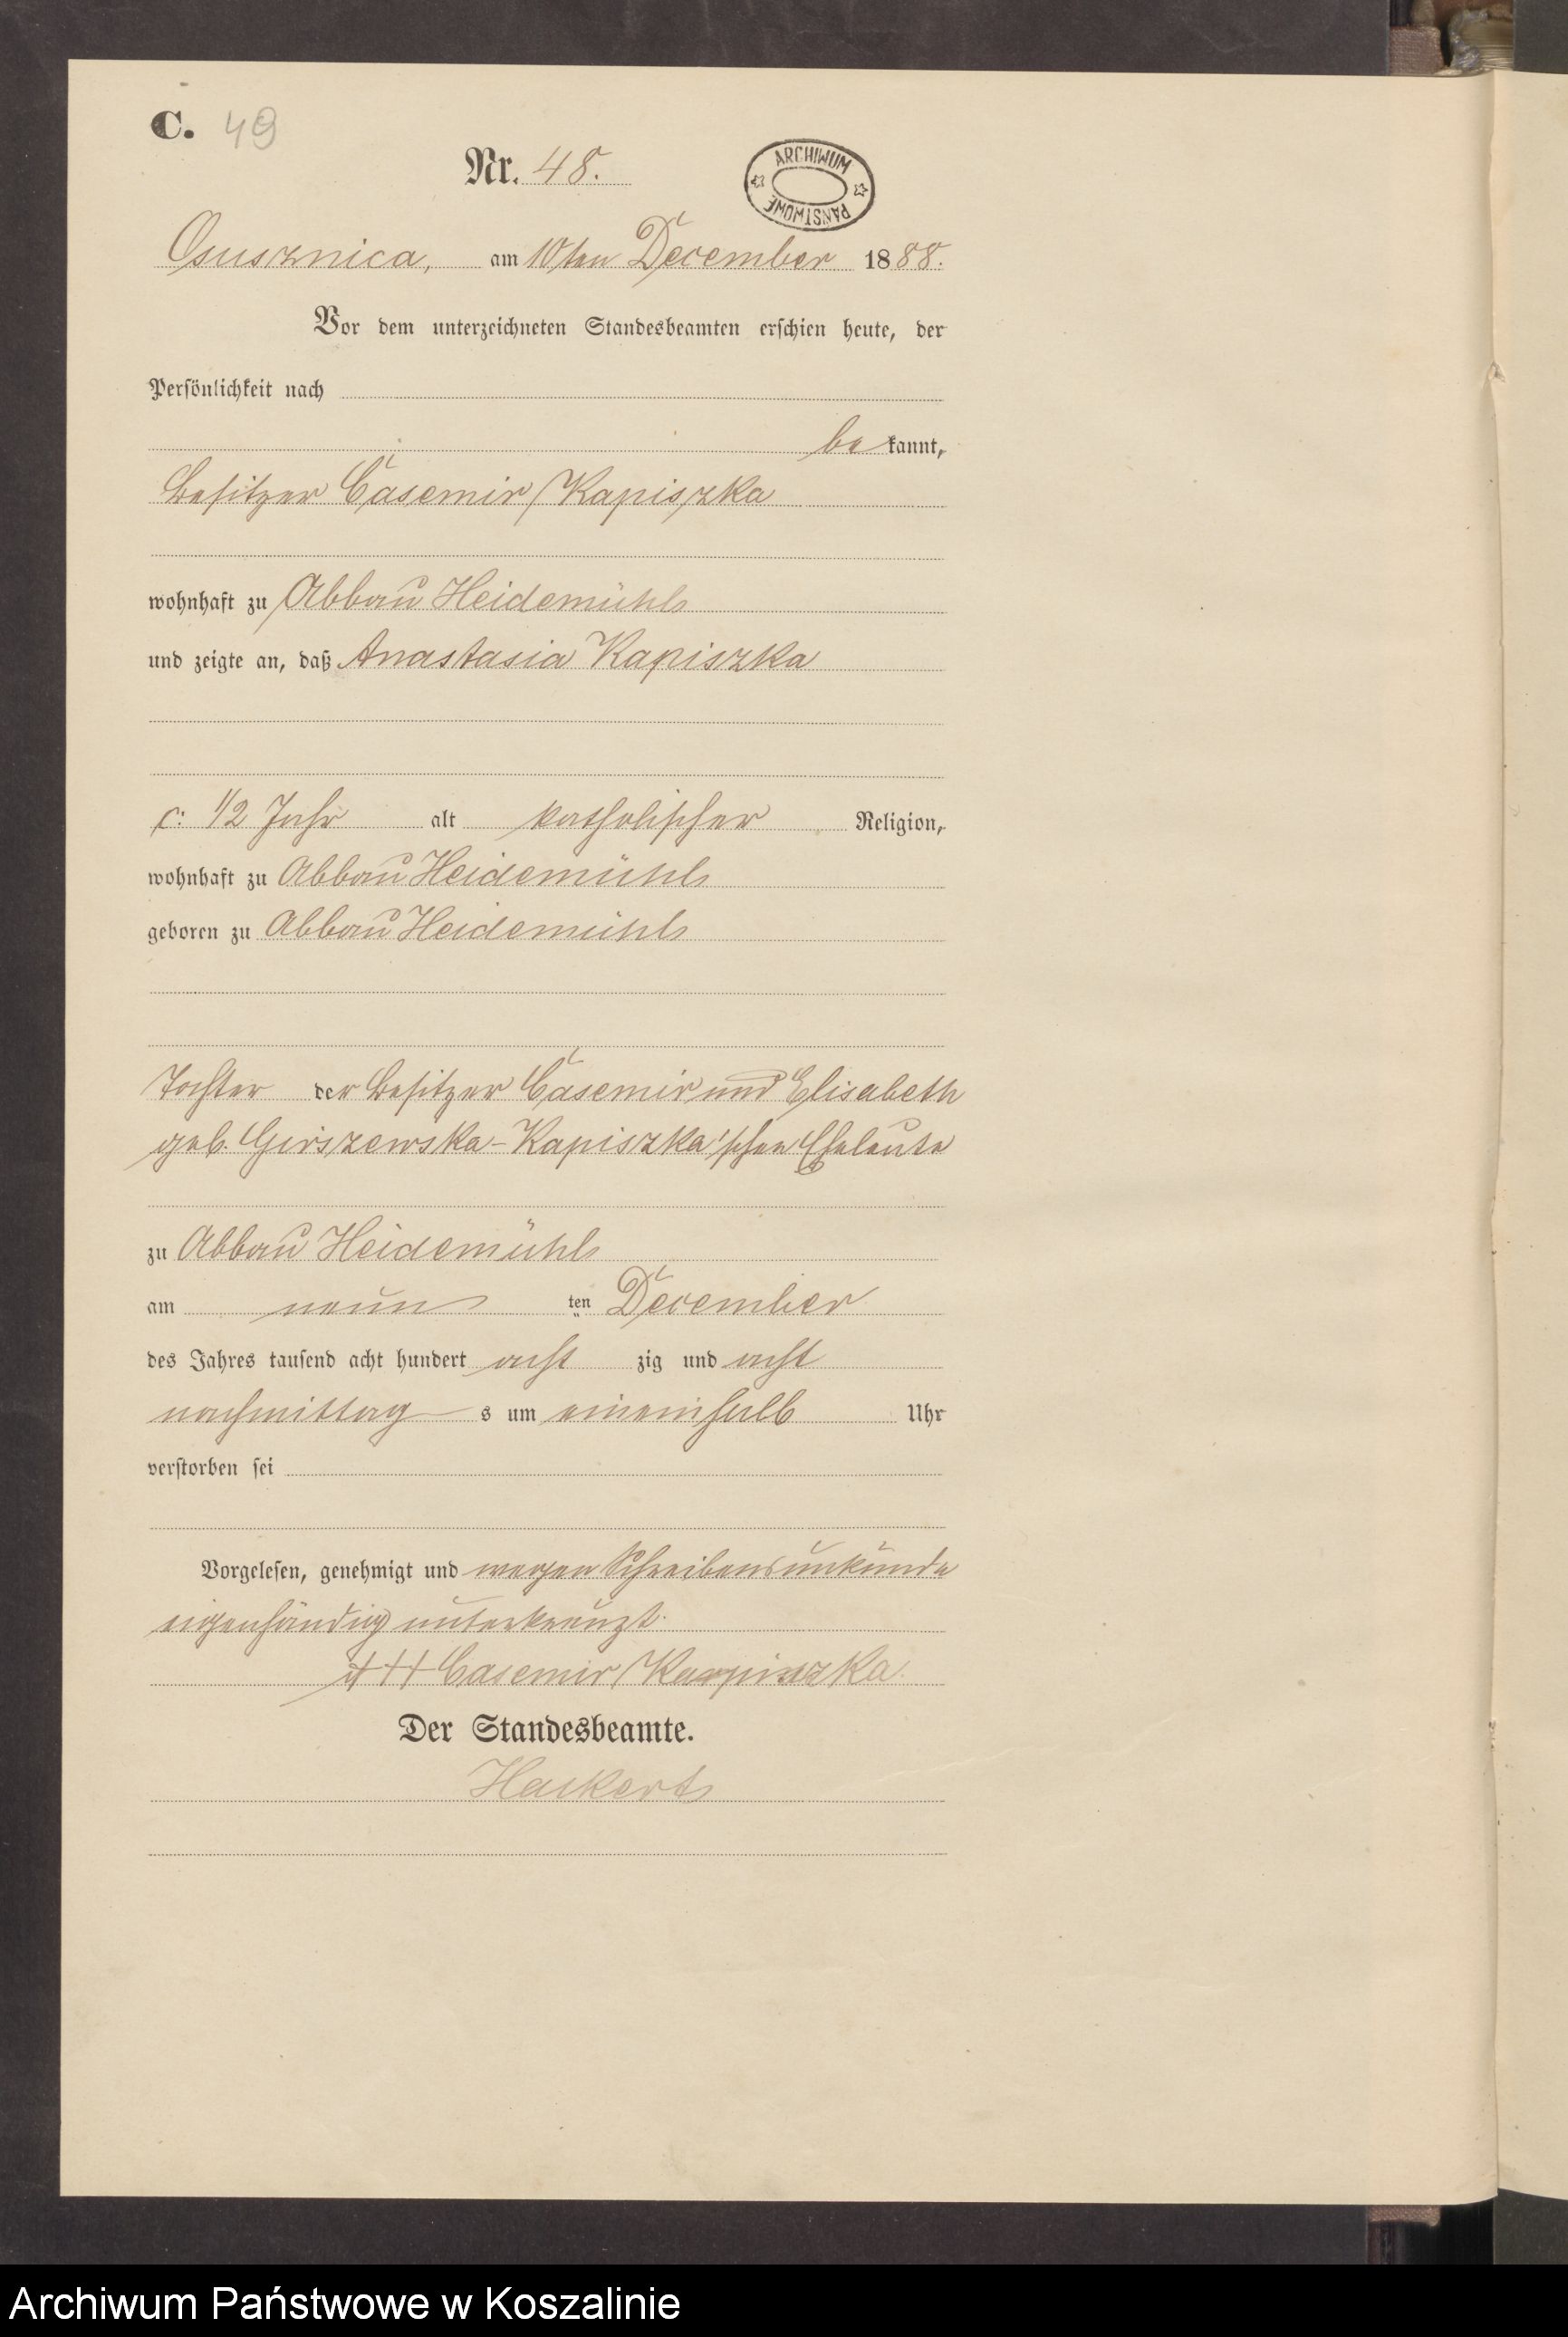 C. 49
Nr. 48.
ARCHIWUM PAŃSTWOWE
Osusznica, am 10ten December 1888.
Vor dem unterzeichneten Standesbeamten erschien heute, der
Persönlichkeit nach
be kannt,
Besitzer Casemir Kapiszka
wohnhaft zu Abbau Heidemühl
und zeigte an, daß Anastasia Kapiszka
c: 1/2 Jahr alt katholischer Religion,
wohnhaft zu Abbau Heidemühl
geboren zu Abbau Heidemühl
Tochter der Besitzer Casemir und Elisabeth
geb. Girszewska-Kapiszka'schen Eheleute
zu Abbau Heidemühl
am neun ten December
des Jahres tausend acht hundert acht zig und acht
nachmittag s um eineinhalb Uhr
verstorben sei
Vorgelesen, genehmigt und wegen Schreibensunkunde
eigenhändig unterkreuzt.
+++ Casemir Kapiszka.
Der Standesbeamte.
Archiwum Państwowe w Koszalinie